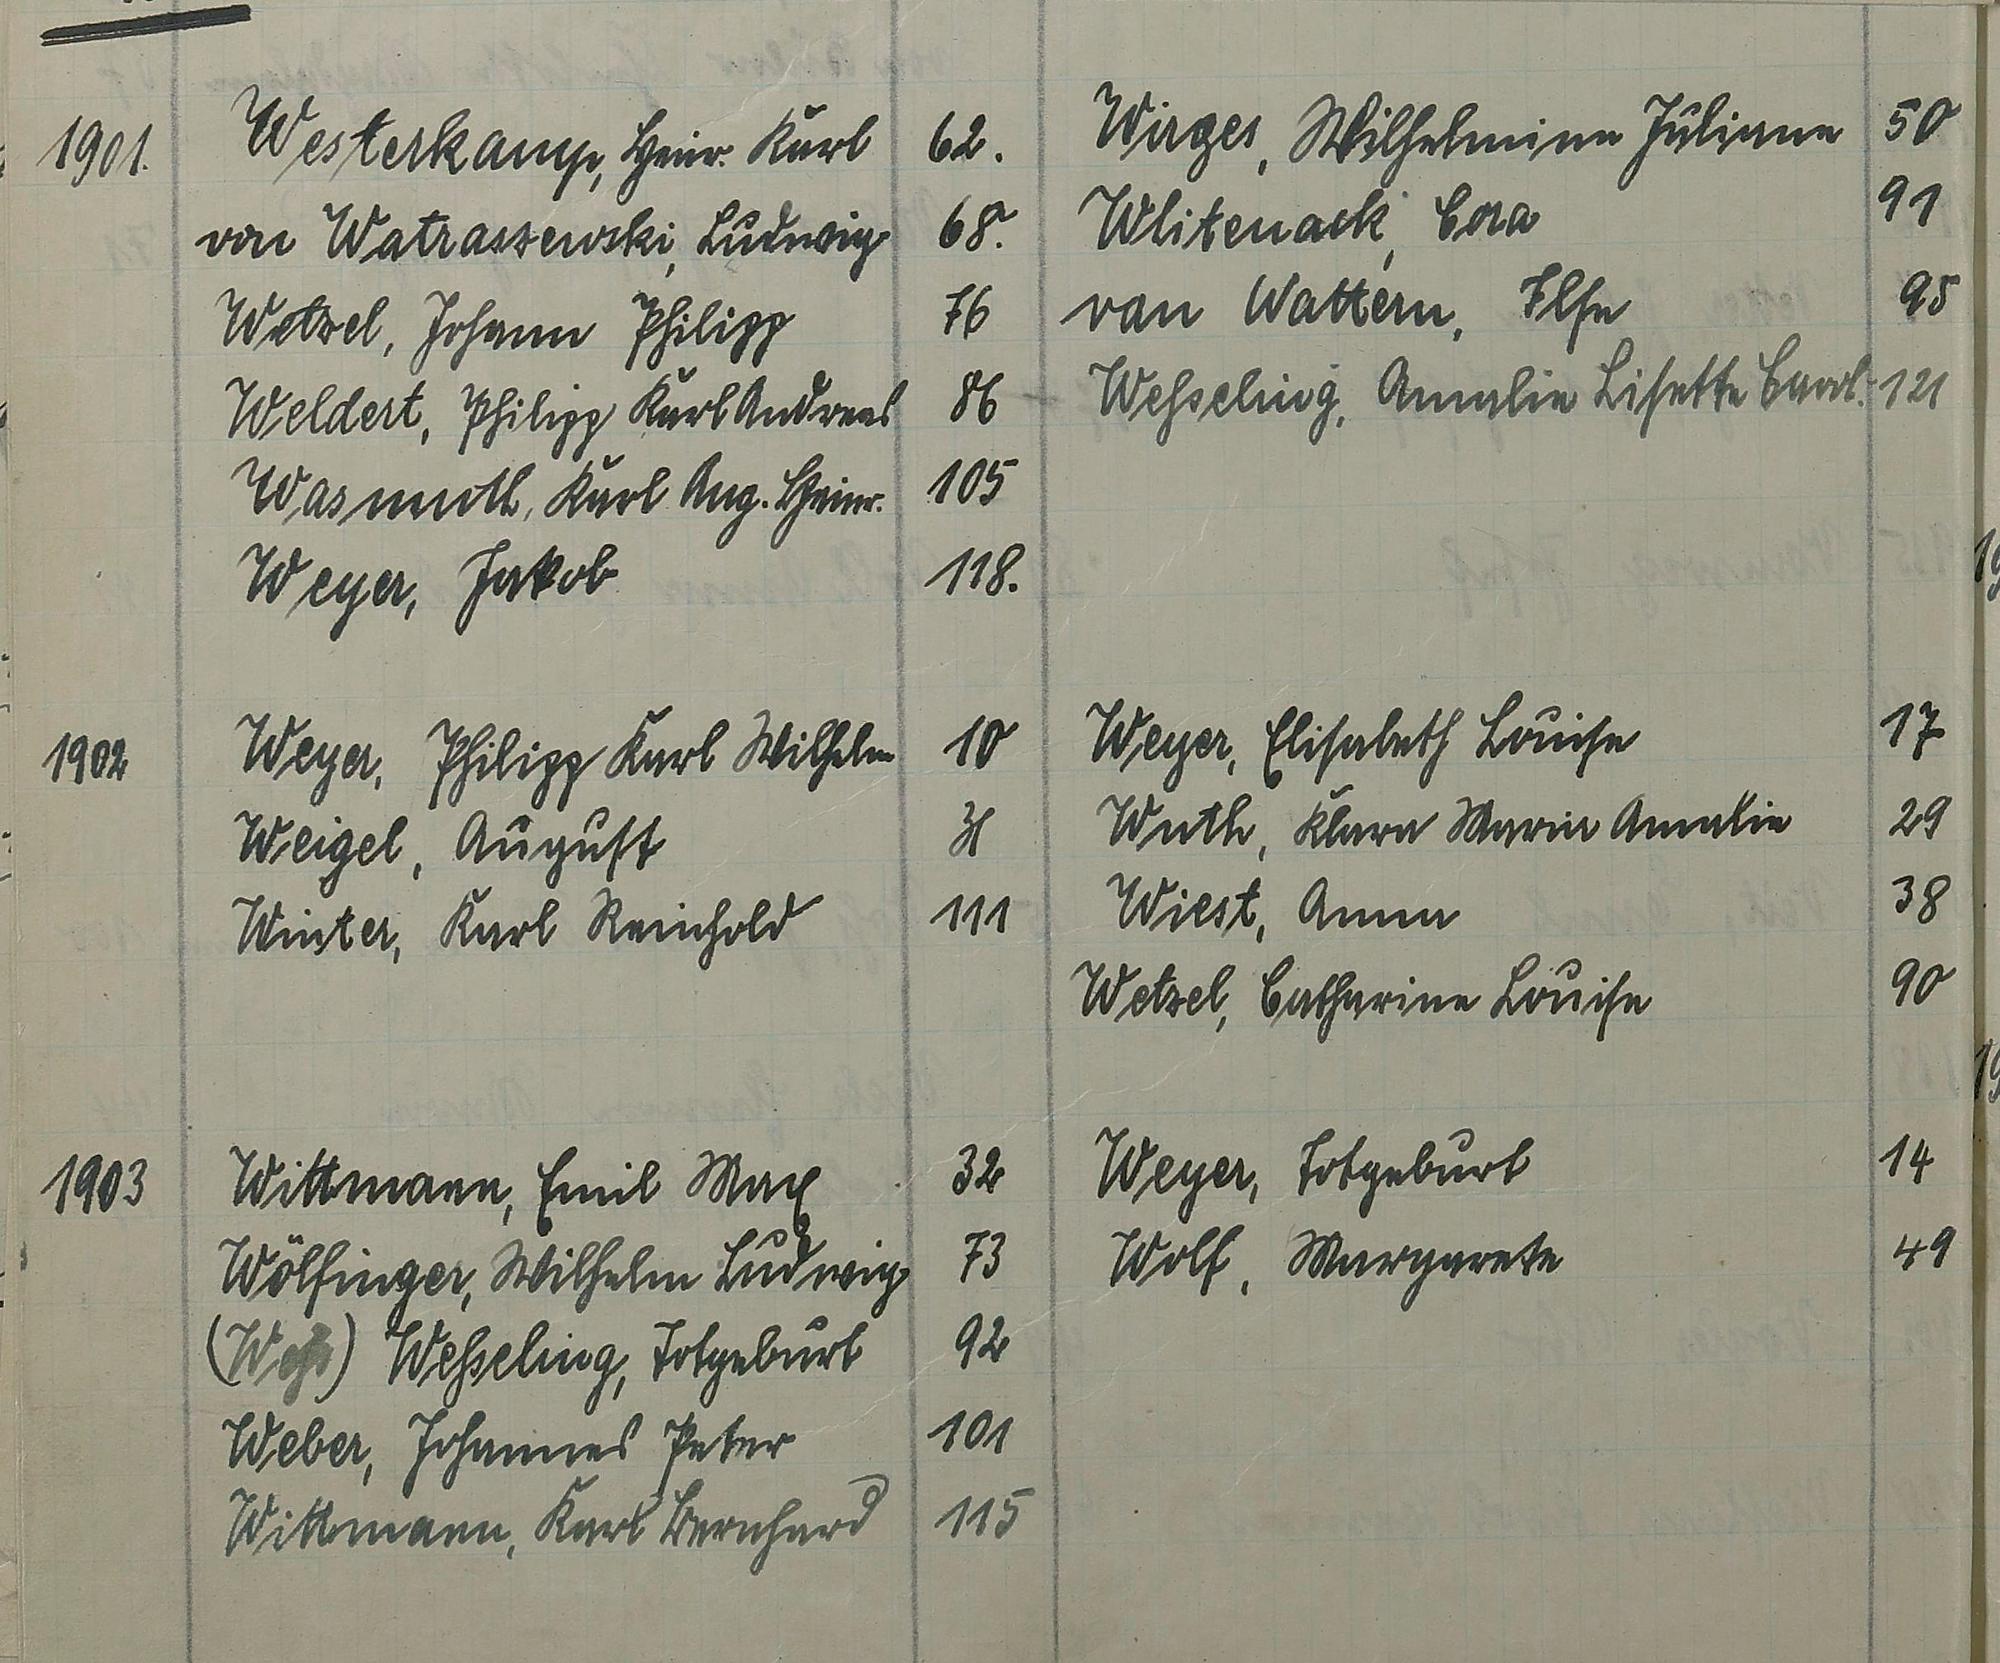 1901. Westerkamp, Heinr. Karl 62. Wirges, Wilhelmine Juliane 50
von Watraszewski, Ludwig 68. Wlitenack, Cora 91
Wetzel, Johann Philipp 76 van Wattern, Ilse 95
Weldert, Philipp Karl Andreas 86 Wesseling, Amalie Lisette Carol. 121
Wasmuth, Karl Aug. Heinr. 105
Weyer, Jakob 118.
1902 Weyer, Philipp Karl Wilhelm 10 Weyer, Elisabeth Louise 17
Weigel, August 31 Wuth, Klara Maria Amalie 29
Winter, Karl Reinhold 111 Wiest, Anna 38
Wetzel, Catharine Louise 90
1903 Wittmann, Emil Max 32 Weyer, Totgeburt 14
Wölfinger, Wilhelm Ludwig 73 Wolf, Margarete 49
Wesseling, Totgeburt 92
Weber, Johannes Peter 101
Wittmann, Karl Bernhard 115